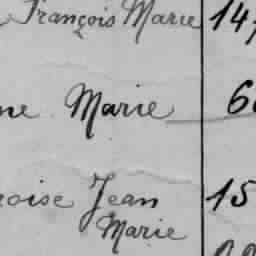 François Marie 14
ne Marie 6
roise Jean 15
Marie